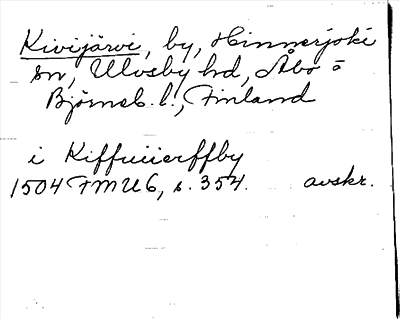 Kivijärvi, by, Hinnerjoki
sn, Ulvsby hd, Åbo o
Björneb. l., Finland
i Kiffuiierffby
1504 FMU6, s. 354. avskr.